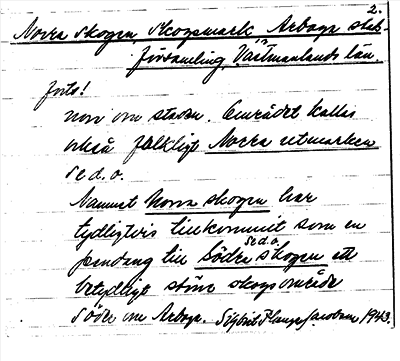 2.
Norra skogen skogsmark, Arboga stads-
församling, Västmanlands län.
forts!
norr om staden. Området kallas
också folkligt Norra utmarken
se d.o.
Namnet Norra skogen har
tydligtvis tillkommit som en
pendang till Södra skogen se d.o. ett
betydligt större skogsområde
söder om Arboga. Sigfrid Plange Jacobson 1943.